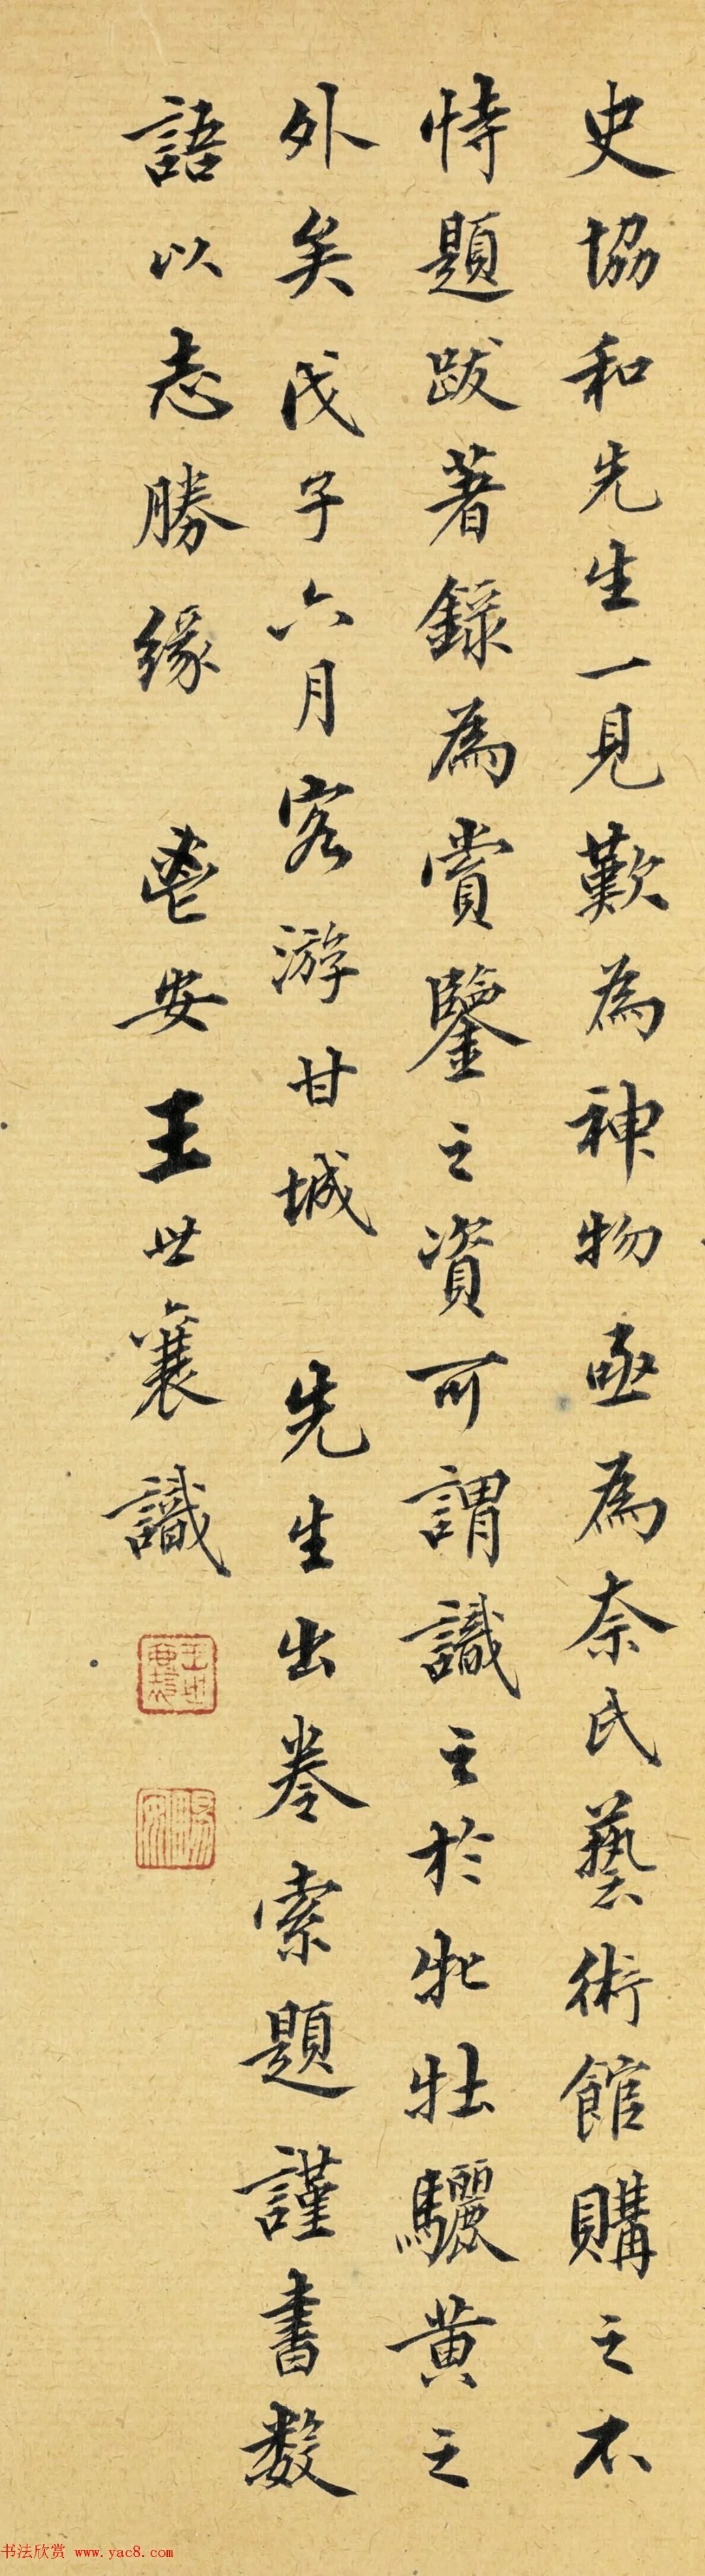 史協和先生一見歎為神物亟為奈氏藝術館購之不
恃題跋著錄為賞鑒之資可謂識之於牝牡驪黃之
外矣戊子六月客游甘城 先生出卷索題謹書數
語以志勝緣 鬯安王世襄識
书法欣赏 www.yac8.com